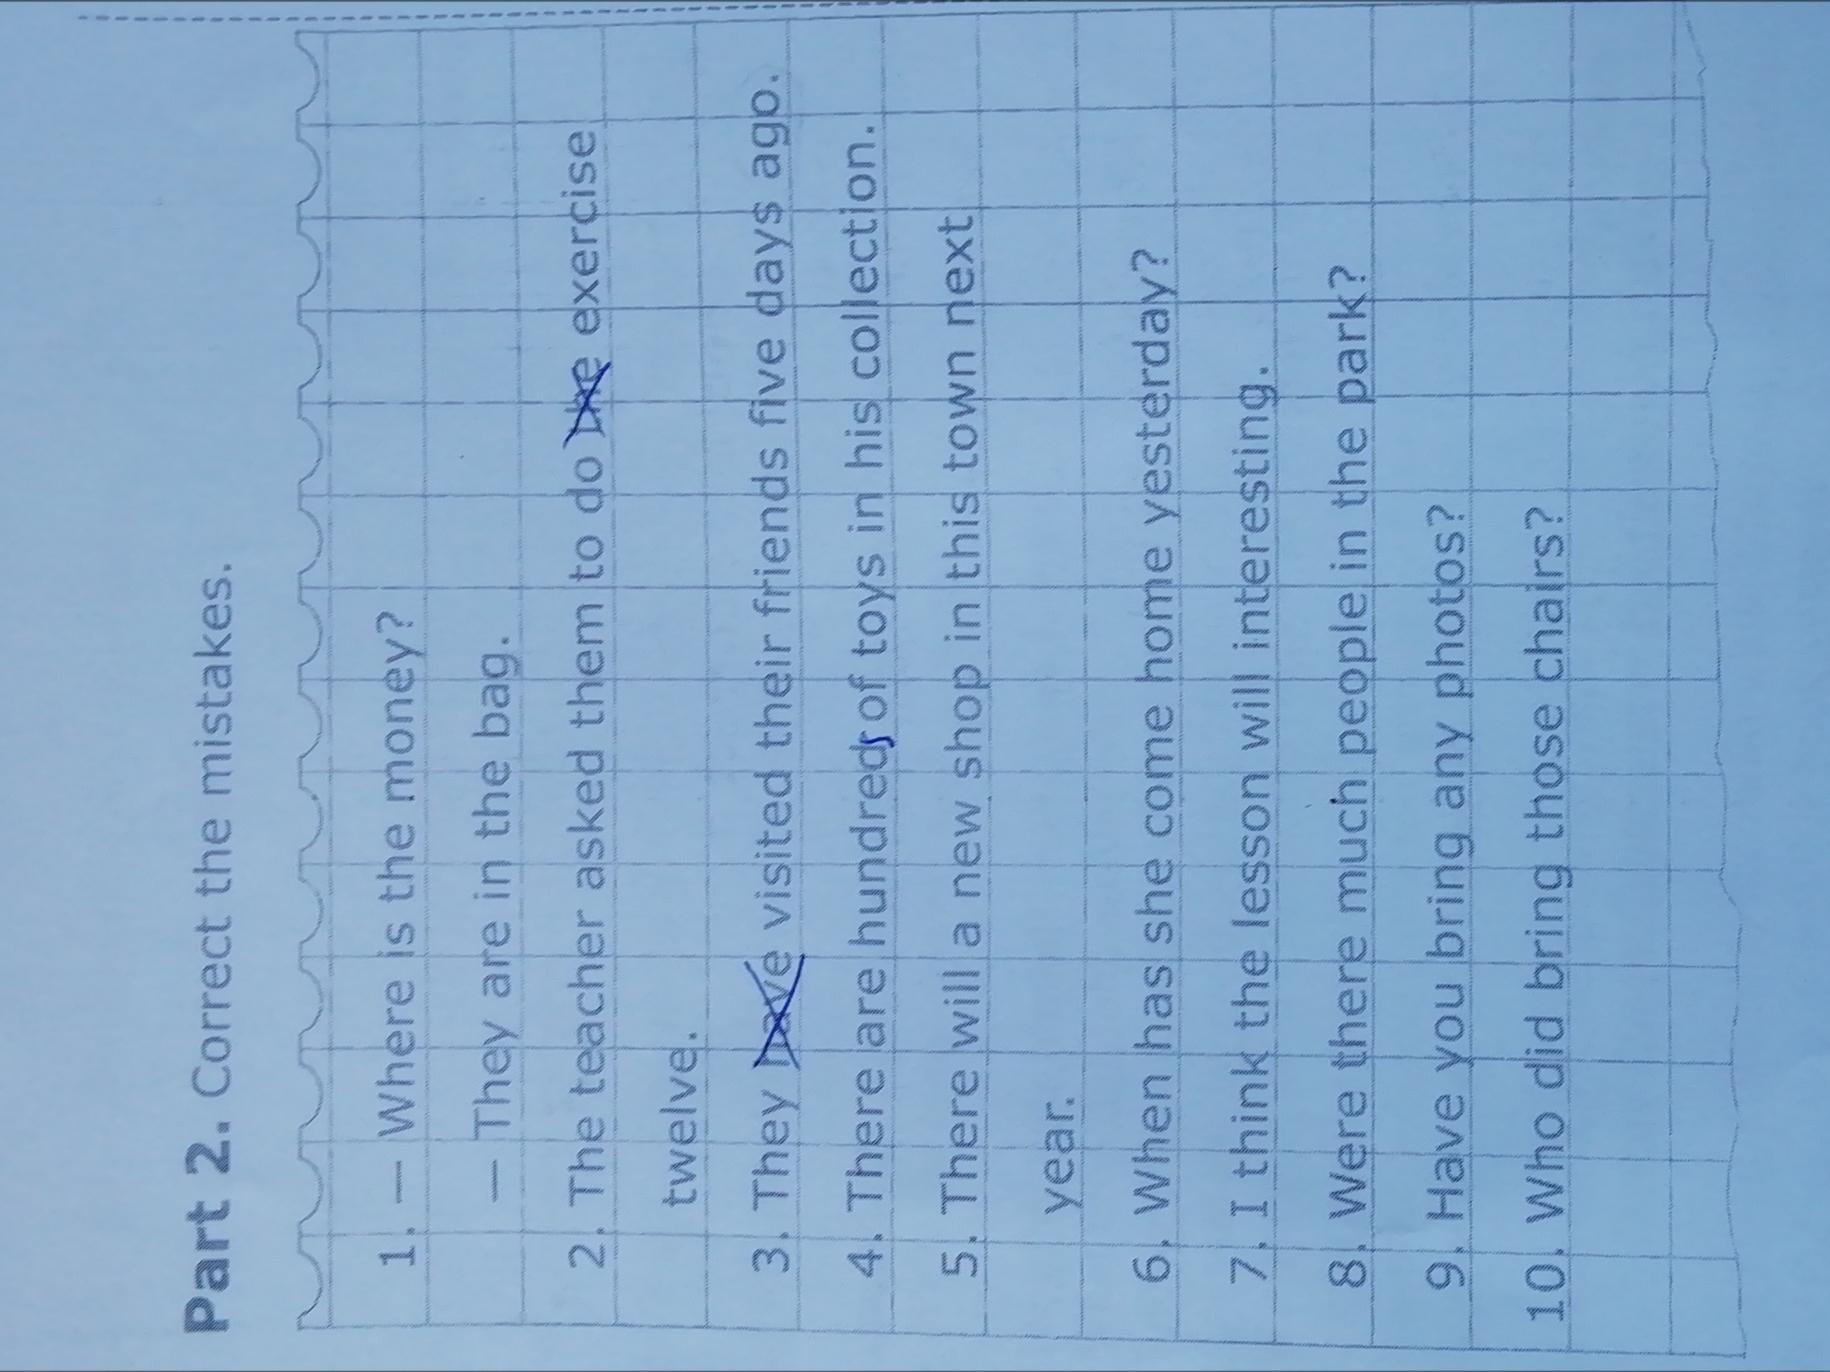 Part 2. Correct the mistakes.
1. — Where is the money?
— They are in the bag.
2. The teacher asked them to do the exercise
twelve.
3. They have visited their friends five days ago.
4. There are hundreds of toys in his collection.
5. There will a new shop in this town next
year.
6. When has she come home yesterday?
7. I think the lesson will interesting.
8. Were there much people in the park?
9. Have you bring any photos?
10. Who did bring those chairs?